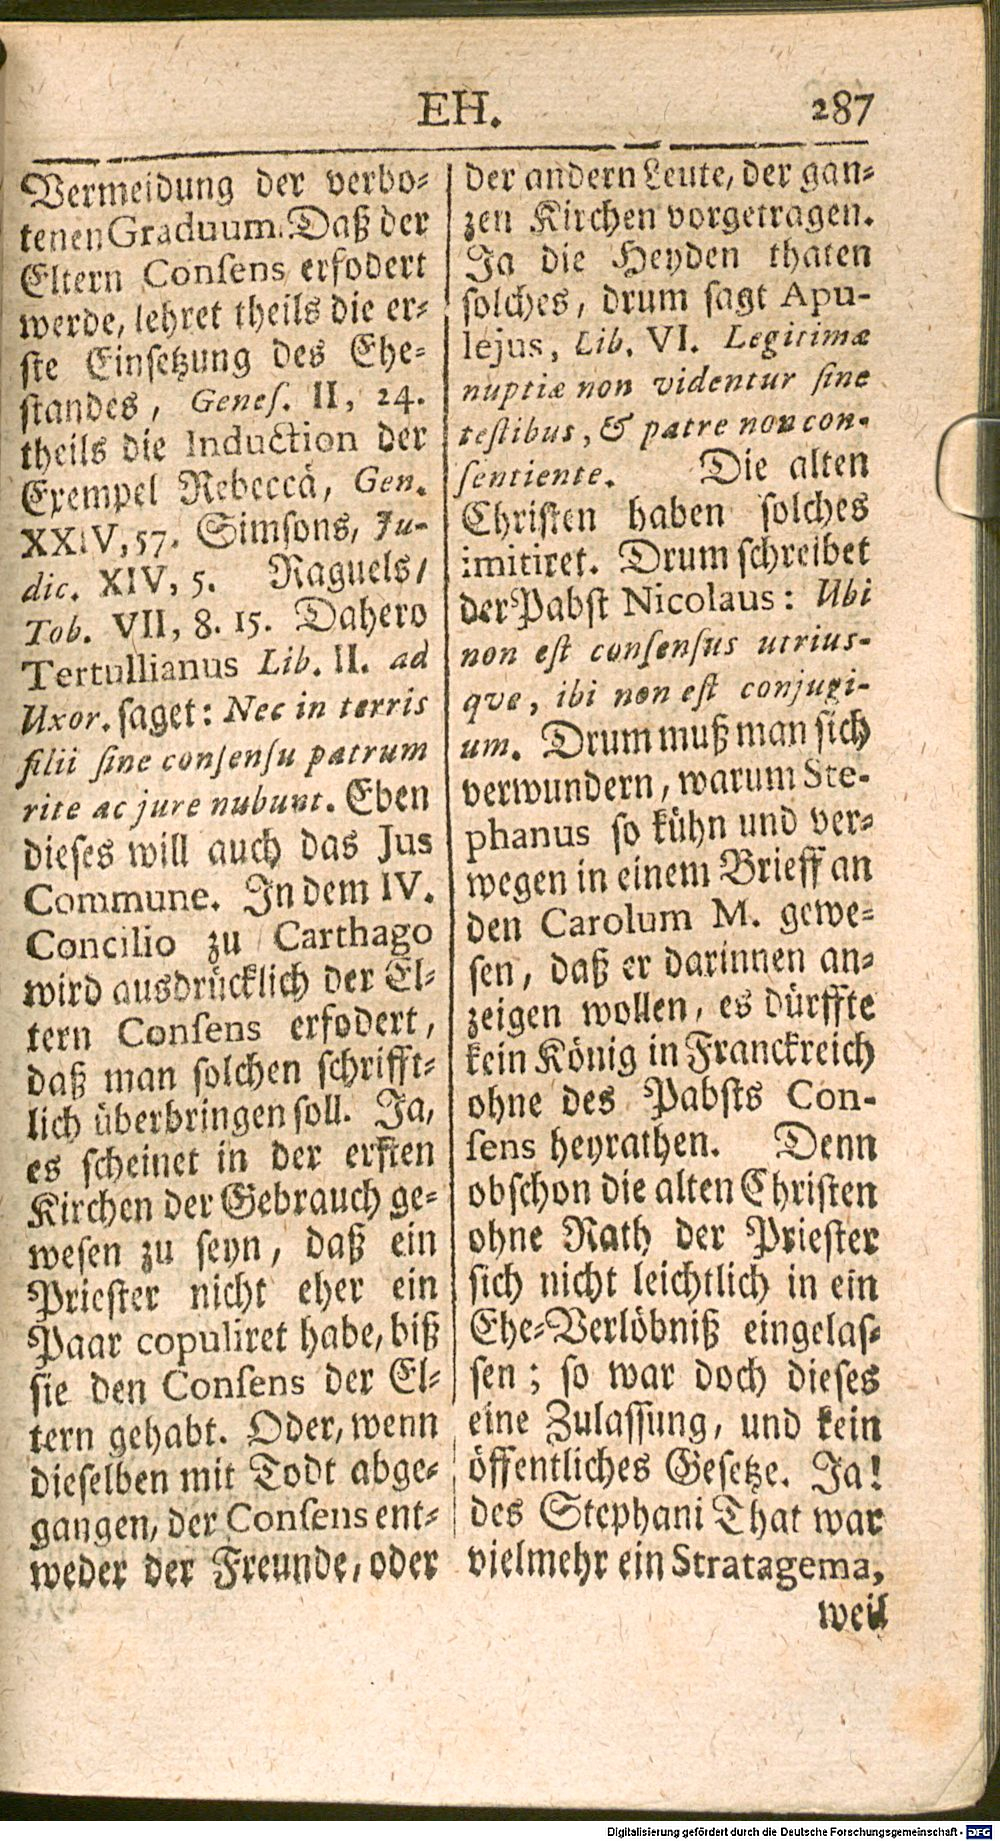 EH. 287
Vermeidung der verbo-
tenen Graduum. Daß der
Eltern Consens erfodert
werde, lehret theils die er-
ste Einsetzung des Ehe-
standes, Genes. II, 24.
theils die Induction der
Exempel Rebeccä, Gen.
XXIV, 57. Simsons, Ju-
dic. XIV, 5. Raguels/
Tob. VII, 8. 15. Dahero
Tertullianus Lib. II. ad
Uxor. saget: Nec in terris
filii sine consensu patrum
rite ac jure nubunt. Eben
dieses will auch das Jus
Commune. In dem IV.
Concilio zu Carthago
wird ausdrücklich der El-
tern Consens erfodert,
daß man solchen schrifft-
lich überbringen soll. Ja,
es scheinet in der ersten
Kirchen der Gebrauch ge-
wesen zu seyn, daß ein
Priester nicht eher ein
Paar copuliret habe, biß
sie den Consens der El-
tern gehabt. Oder, wenn
dieselben mit Todt abge-
gangen, der Consens ent-
weder der Freunde, oder
der andern Leute, der gan-
zen Kirchen vorgetragen.
Ja die Heyden thaten
solches, drum sagt Apu-
lejus, Lib. VI. Legitimæ
nuptiæ non videntur sine
testibus, & patre non con-
sentiente. Die alten
Christen haben solches
imitiret. Drum schreibet
der Pabst Nicolaus: Ubi
non est consensus utrius-
qve, ibi non est conjugi-
um. Drum muß man sich
verwundern, warum Ste-
phanus so kühn und ver-
wegen in einem Brieff an
den Carolum M. gewe-
sen, daß er darinnen an-
zeigen wollen, es dürffte
kein König in Franckreich
ohne des Pabsts Con-
sens heyrathen. Denn
obschon die alten Christen
ohne Rath der Priester
sich nicht leichtlich in ein
Ehe-Verlöbniß eingelas-
sen; so war doch dieses
eine Zulassung, und kein
öffentliches Gesetze. Ja!
des Stephani That war
vielmehr ein Stratagema,
weil
Digitalisierung gefördert durch die Deutsche Forschungsgemeinschaft - DFG